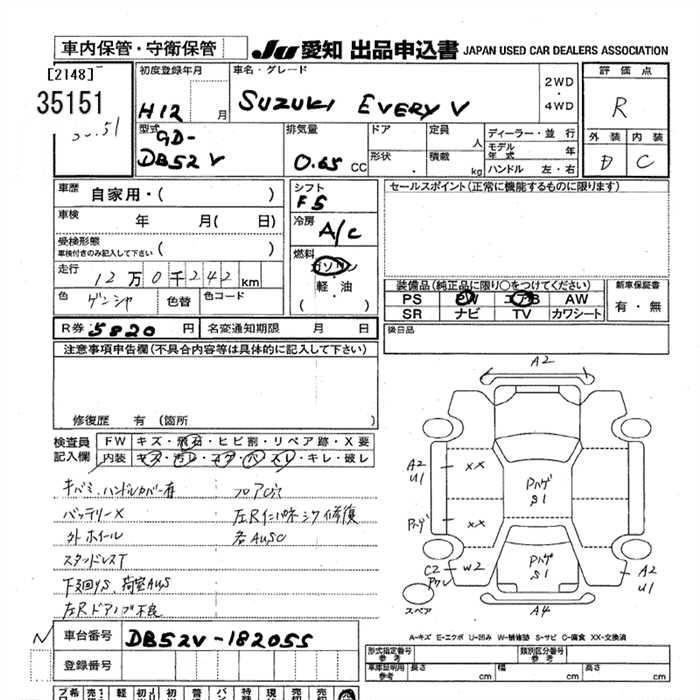 車内保管・守衛保管
JU 愛知 出品申込書 JAPAN USED CAR DEALERS ASSOCIATION
[2148]
35151
初度登録年月
H12 月
車名・グレード
SUZUKI EVERY V
2WD
・
4WD
評価点
R
外装 内装
D C
型式
GD-
DB52V
排気量
0.65 CC
ドア
形状
定員 人
積載 kg
ディーラー・並行
モデル年式 年
ハンドル 左・右
車歴 自家用・( )
車検 年 月( 日)
受検形態
車検付きのみ記入して下さい ( )
走行 12万0千242 km
色 ゲンシャ 色替 色コード
R券 5820 円 名変通知期限 月 日
シフト
F5
冷房
A/C
燃料
ガソリン
・
軽・油
( )
セールスポイント(正常に機能するものに限ります)
装備品(純正品に限り○をつけてください)
PS PW エアB AW
SR ナビ TV カワシート
新車保証書
有・無
後日品
注意事項申告欄(不具合内容等は具体的に記入して下さい)
修復歴 有 (箇所
検査員記入欄
FW キズ・飛石・ヒビ割・リペア跡・X要
内装 キズ・汚レ・コゲ・穴・スレ・キレ・破レ
キバミ、ハンドルカバー有 フロア穴
バッテリーX
外ホイール
スタッドレスT
下廻りS、荷室AUS
左Rドアノブ不良
A2
A2
U1
XX XX
Pハゲ
S1
Pハゲ
XX XX
C2
W2
Pハゲ
S1
A2
U1
スペア
A4
A-キズ E-エクボ U-凹み W-補修跡 S-サビ C-腐食 XX-交換済
車台番号 DB52V-182055
登録番号
形式指定番号
参考
類別区分番号
参考
車庫証明用
参考
長さ cm 幅 cm 高さ cm